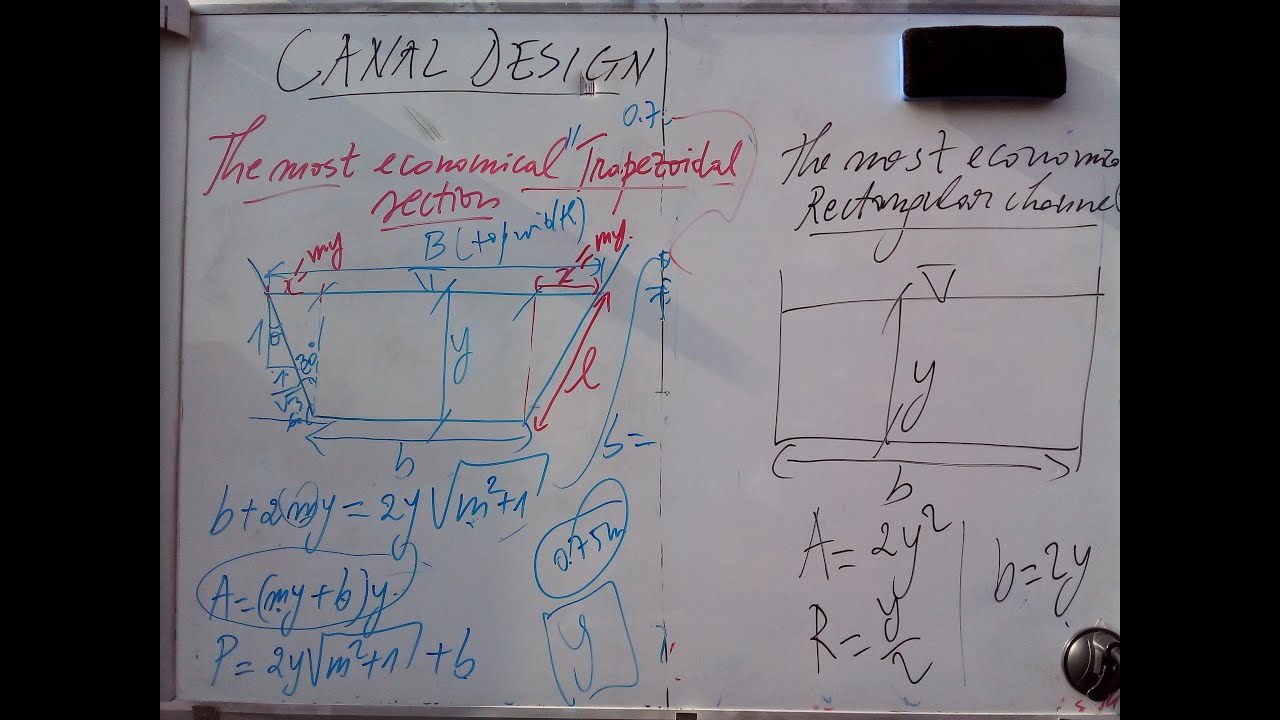 CANAL DESIGN
0.7
The most economical "Trapezoidal
section
B (top width)
my
my
x
z
1
θ
30°
1/√3
60
y
l
b
b =
b+2(m)y = 2y√m²+1
0.75m
A = (my + b)y
P = 2y√m²+1 + b
y
The most economic
Rectangular channel
y
b
A = 2y²
b = 2y
R = y/2